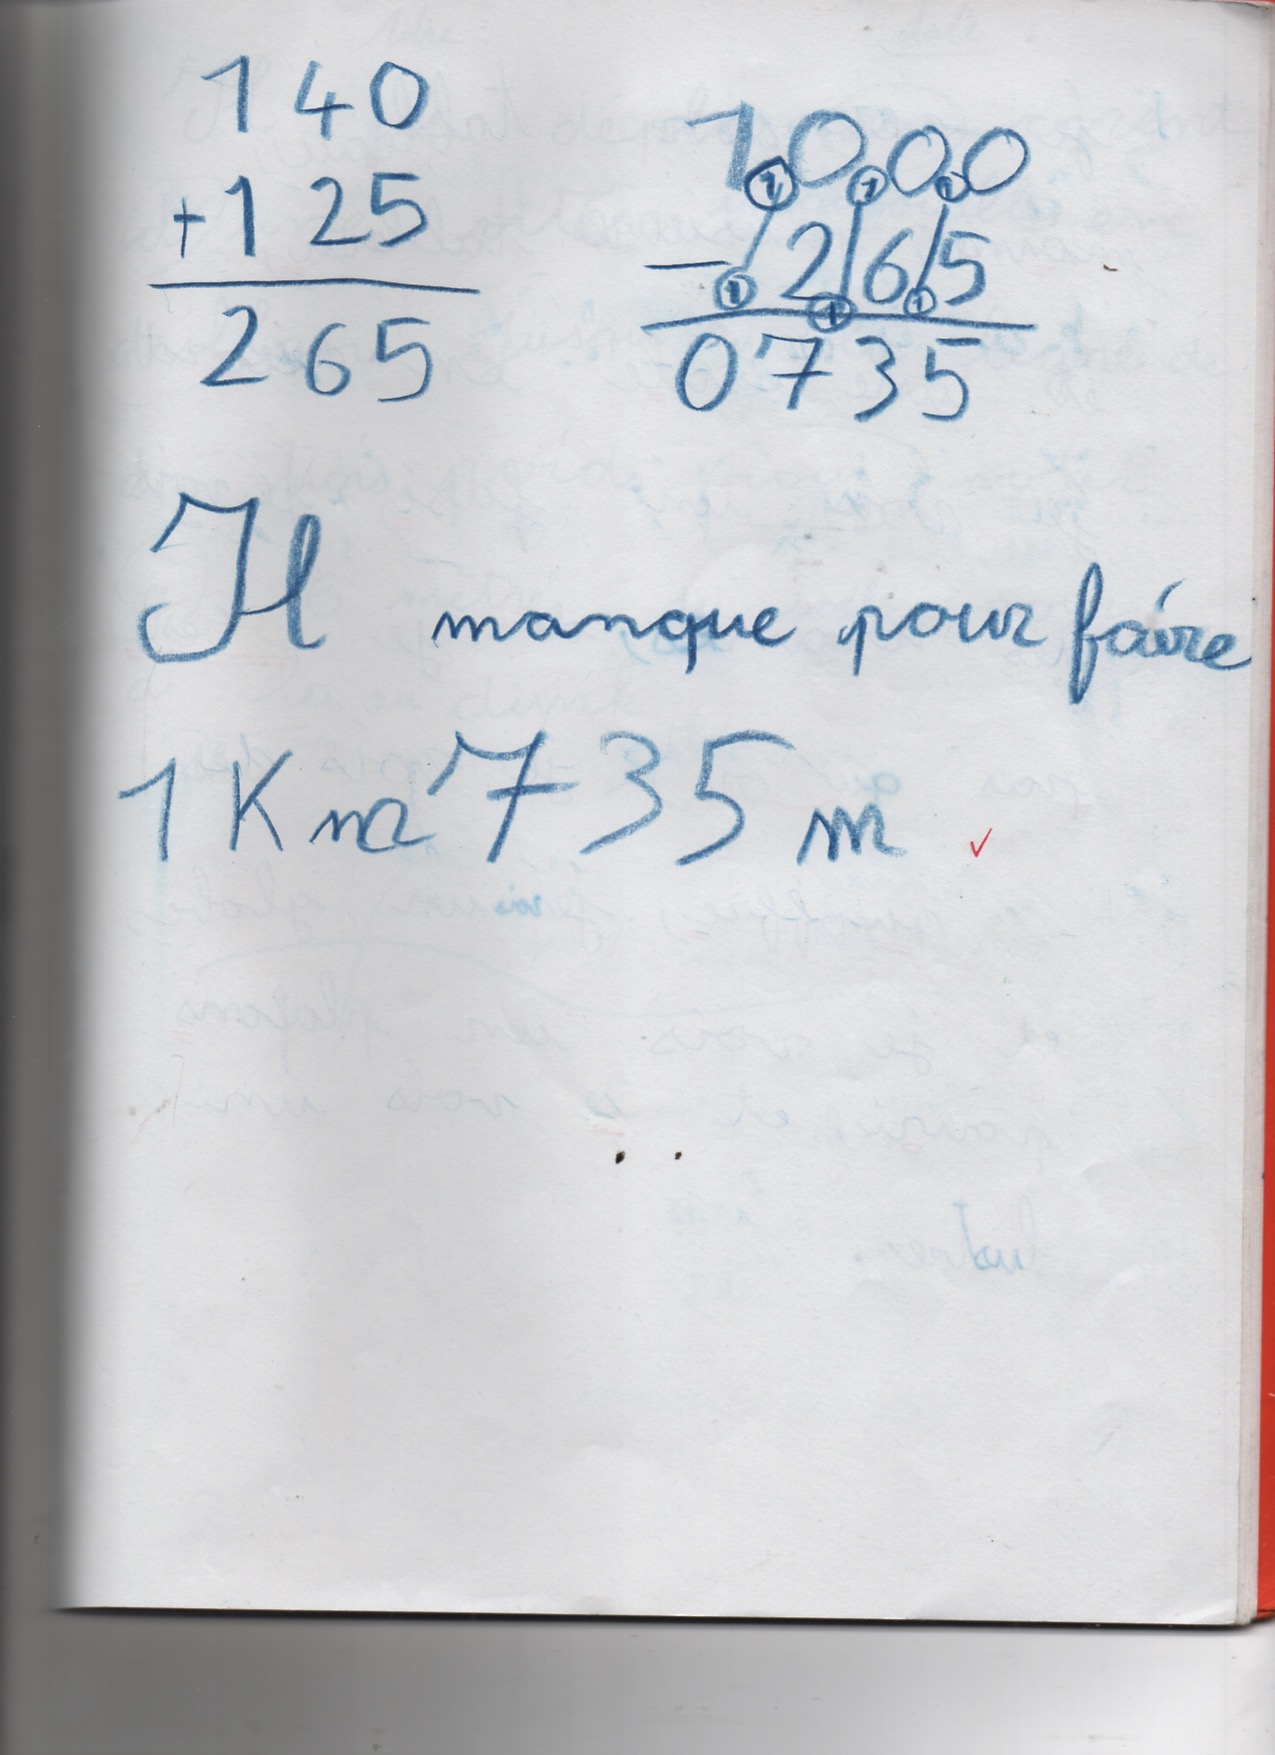 140
+125
265
1000
- 265
0735
Il manque pour faire
1Km 735m